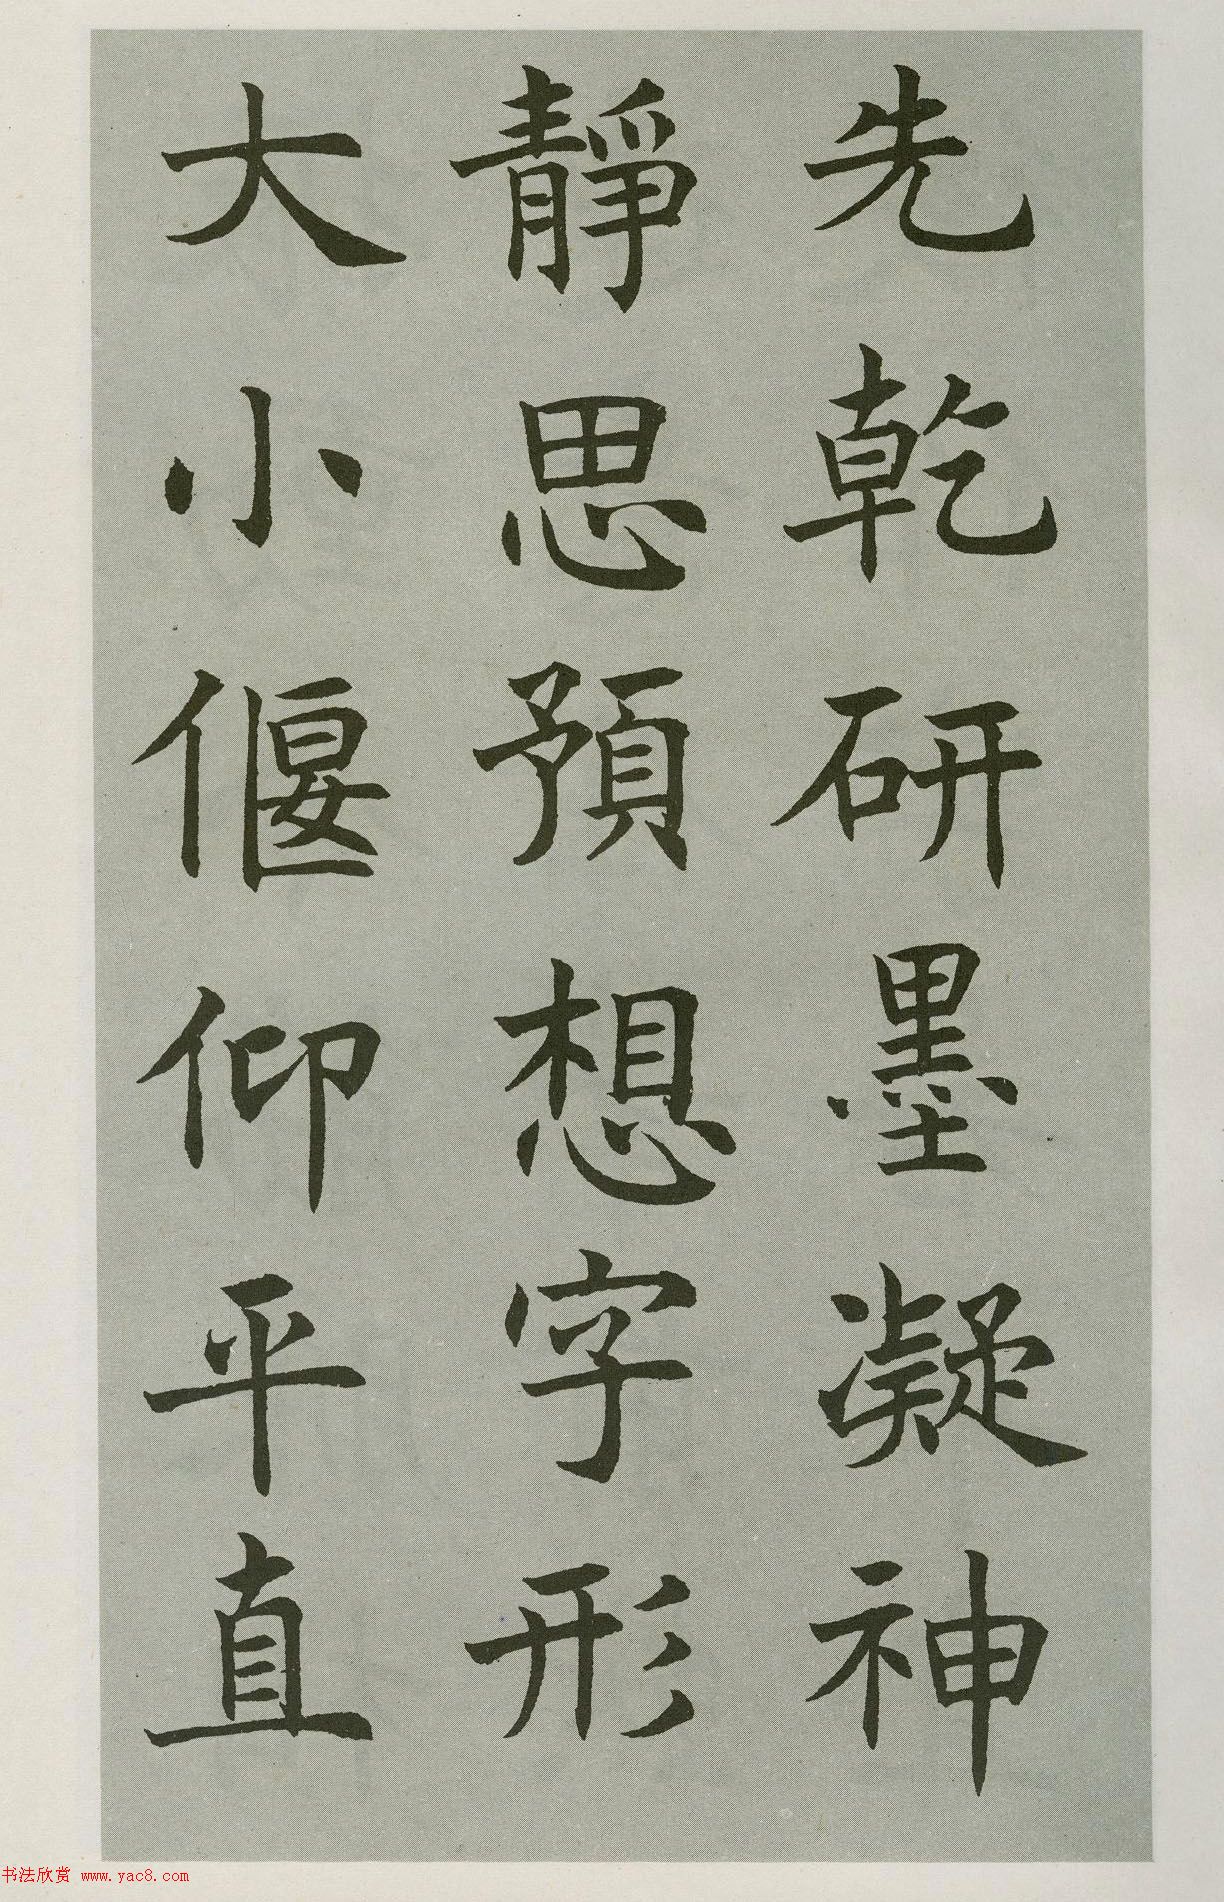 先乾研墨凝神
靜思預想字形
大小偃仰平直
书法欣赏 www.yac8.com